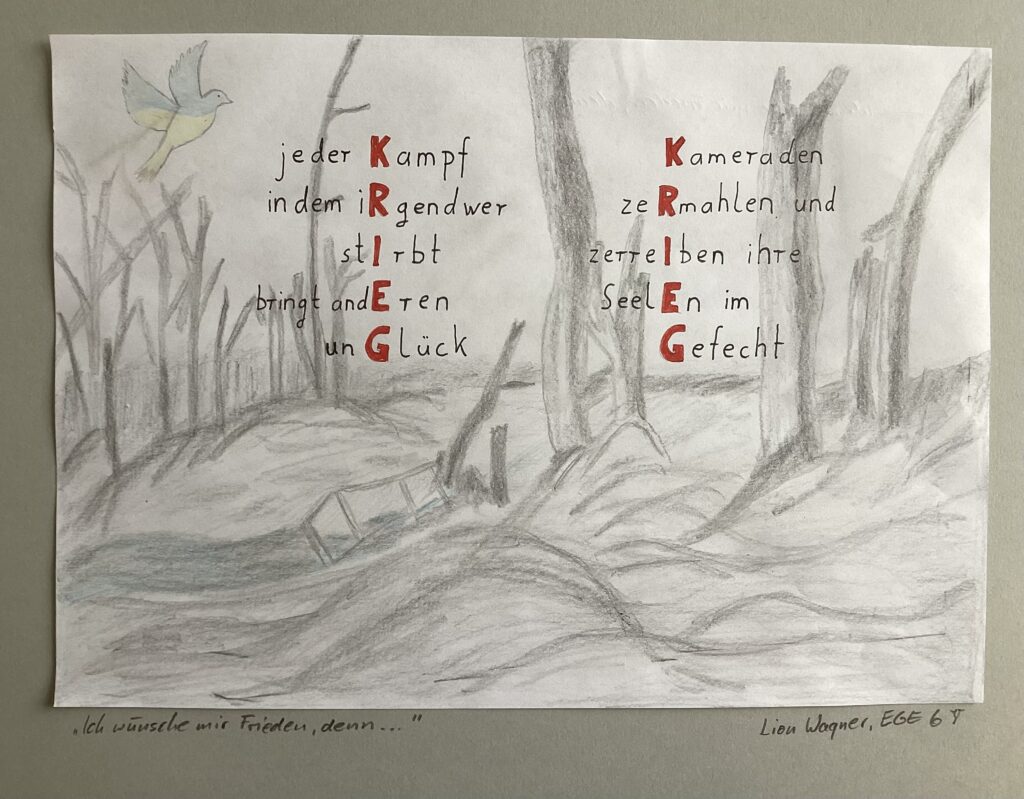 jeder Kampf
in dem iRgendwer
stIrbt
bringt andEren
unGlück
Kameraden
zeRmahlen und
zerreIben ihre
SeelEn im
Gefecht
„Ich wünsche mir Frieden, denn..."
Lion Wagner, EGE 6